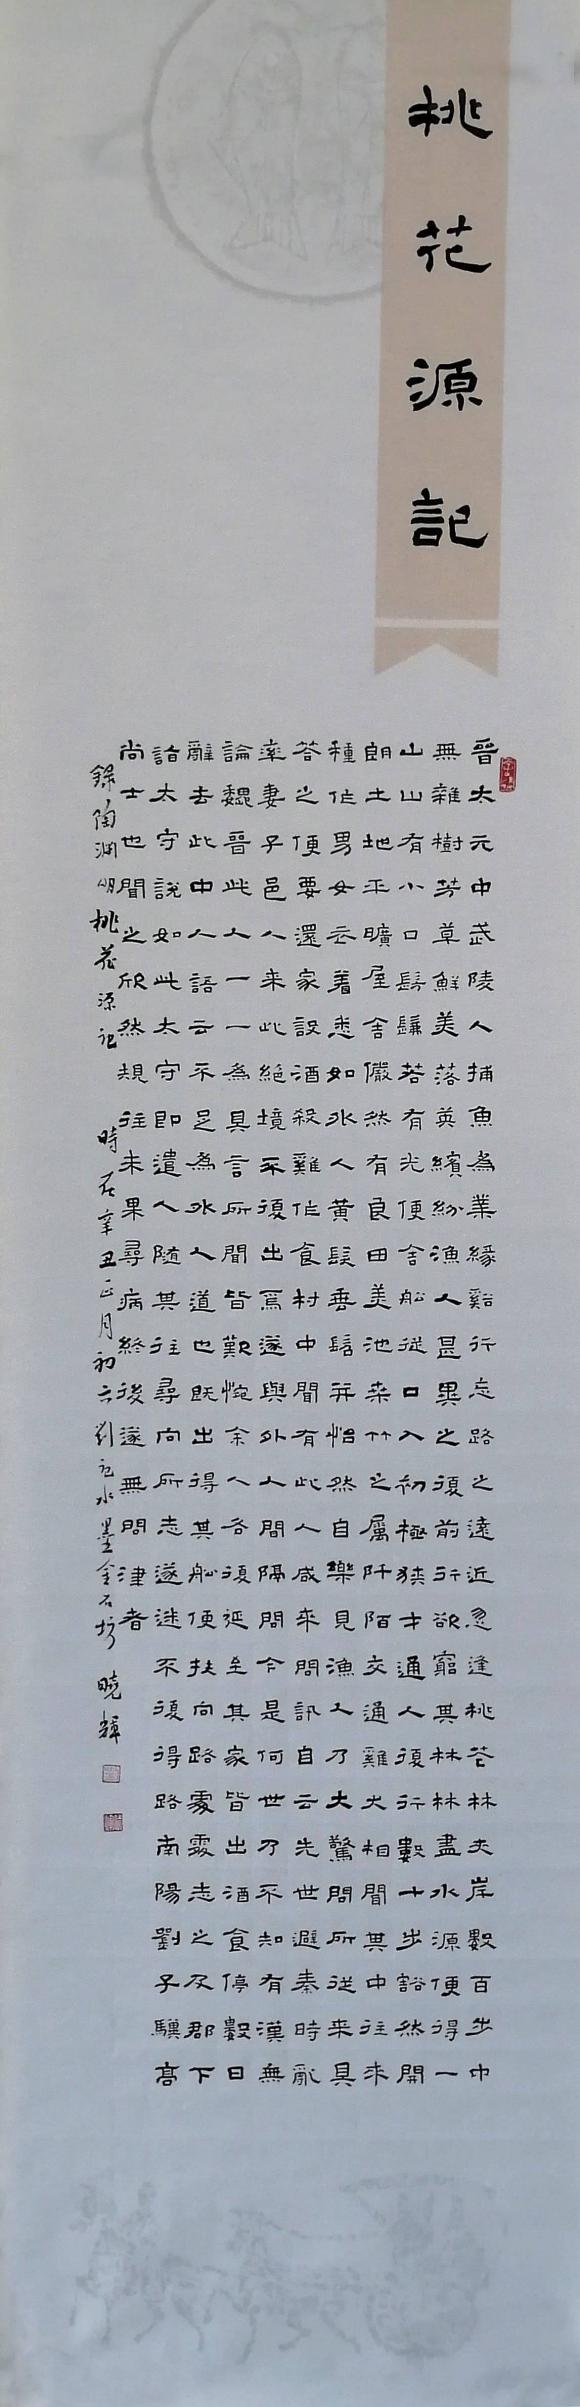 桃花源記
晉太元中武陵人捕魚為業緣谿行忘路之遠近忽逢桃花林夾岸數百步中
無雜樹芳草鮮美落英繽紛漁人甚異之復前行欲窮其林林盡水源便得一
山山有小口髣髴若有光便舍船從口入初極狹才通人復行數十步豁然開
朗土地平曠屋舍儼然有良田美池桑竹之屬阡陌交通雞犬相聞其中往來
種作男女衣着悉如外人黃髮垂髫并怡然自樂見漁人乃大驚問所從來具
答之便要還家設酒殺雞作食村中聞有此人咸來問訊自云先世避秦時亂
率妻子邑人來此絕境不復出焉遂與外人間隔問今是何世乃不知有漢無
論魏晉此人一一為具言所聞皆歎惋余人各復延至其家皆出酒食停數日
辭去此中人語云不足為外人道也既出得其船便扶向路處處志之及郡下
詣太守說如此太守即遣人隨其往尋向所志遂迷不復得路南陽劉子驥高
尚士也聞之欣然規往未果尋病終後遂無問津者
錄陶淵明桃花源記 時在辛丑正月初六劉記水墨金石坊 曉輝